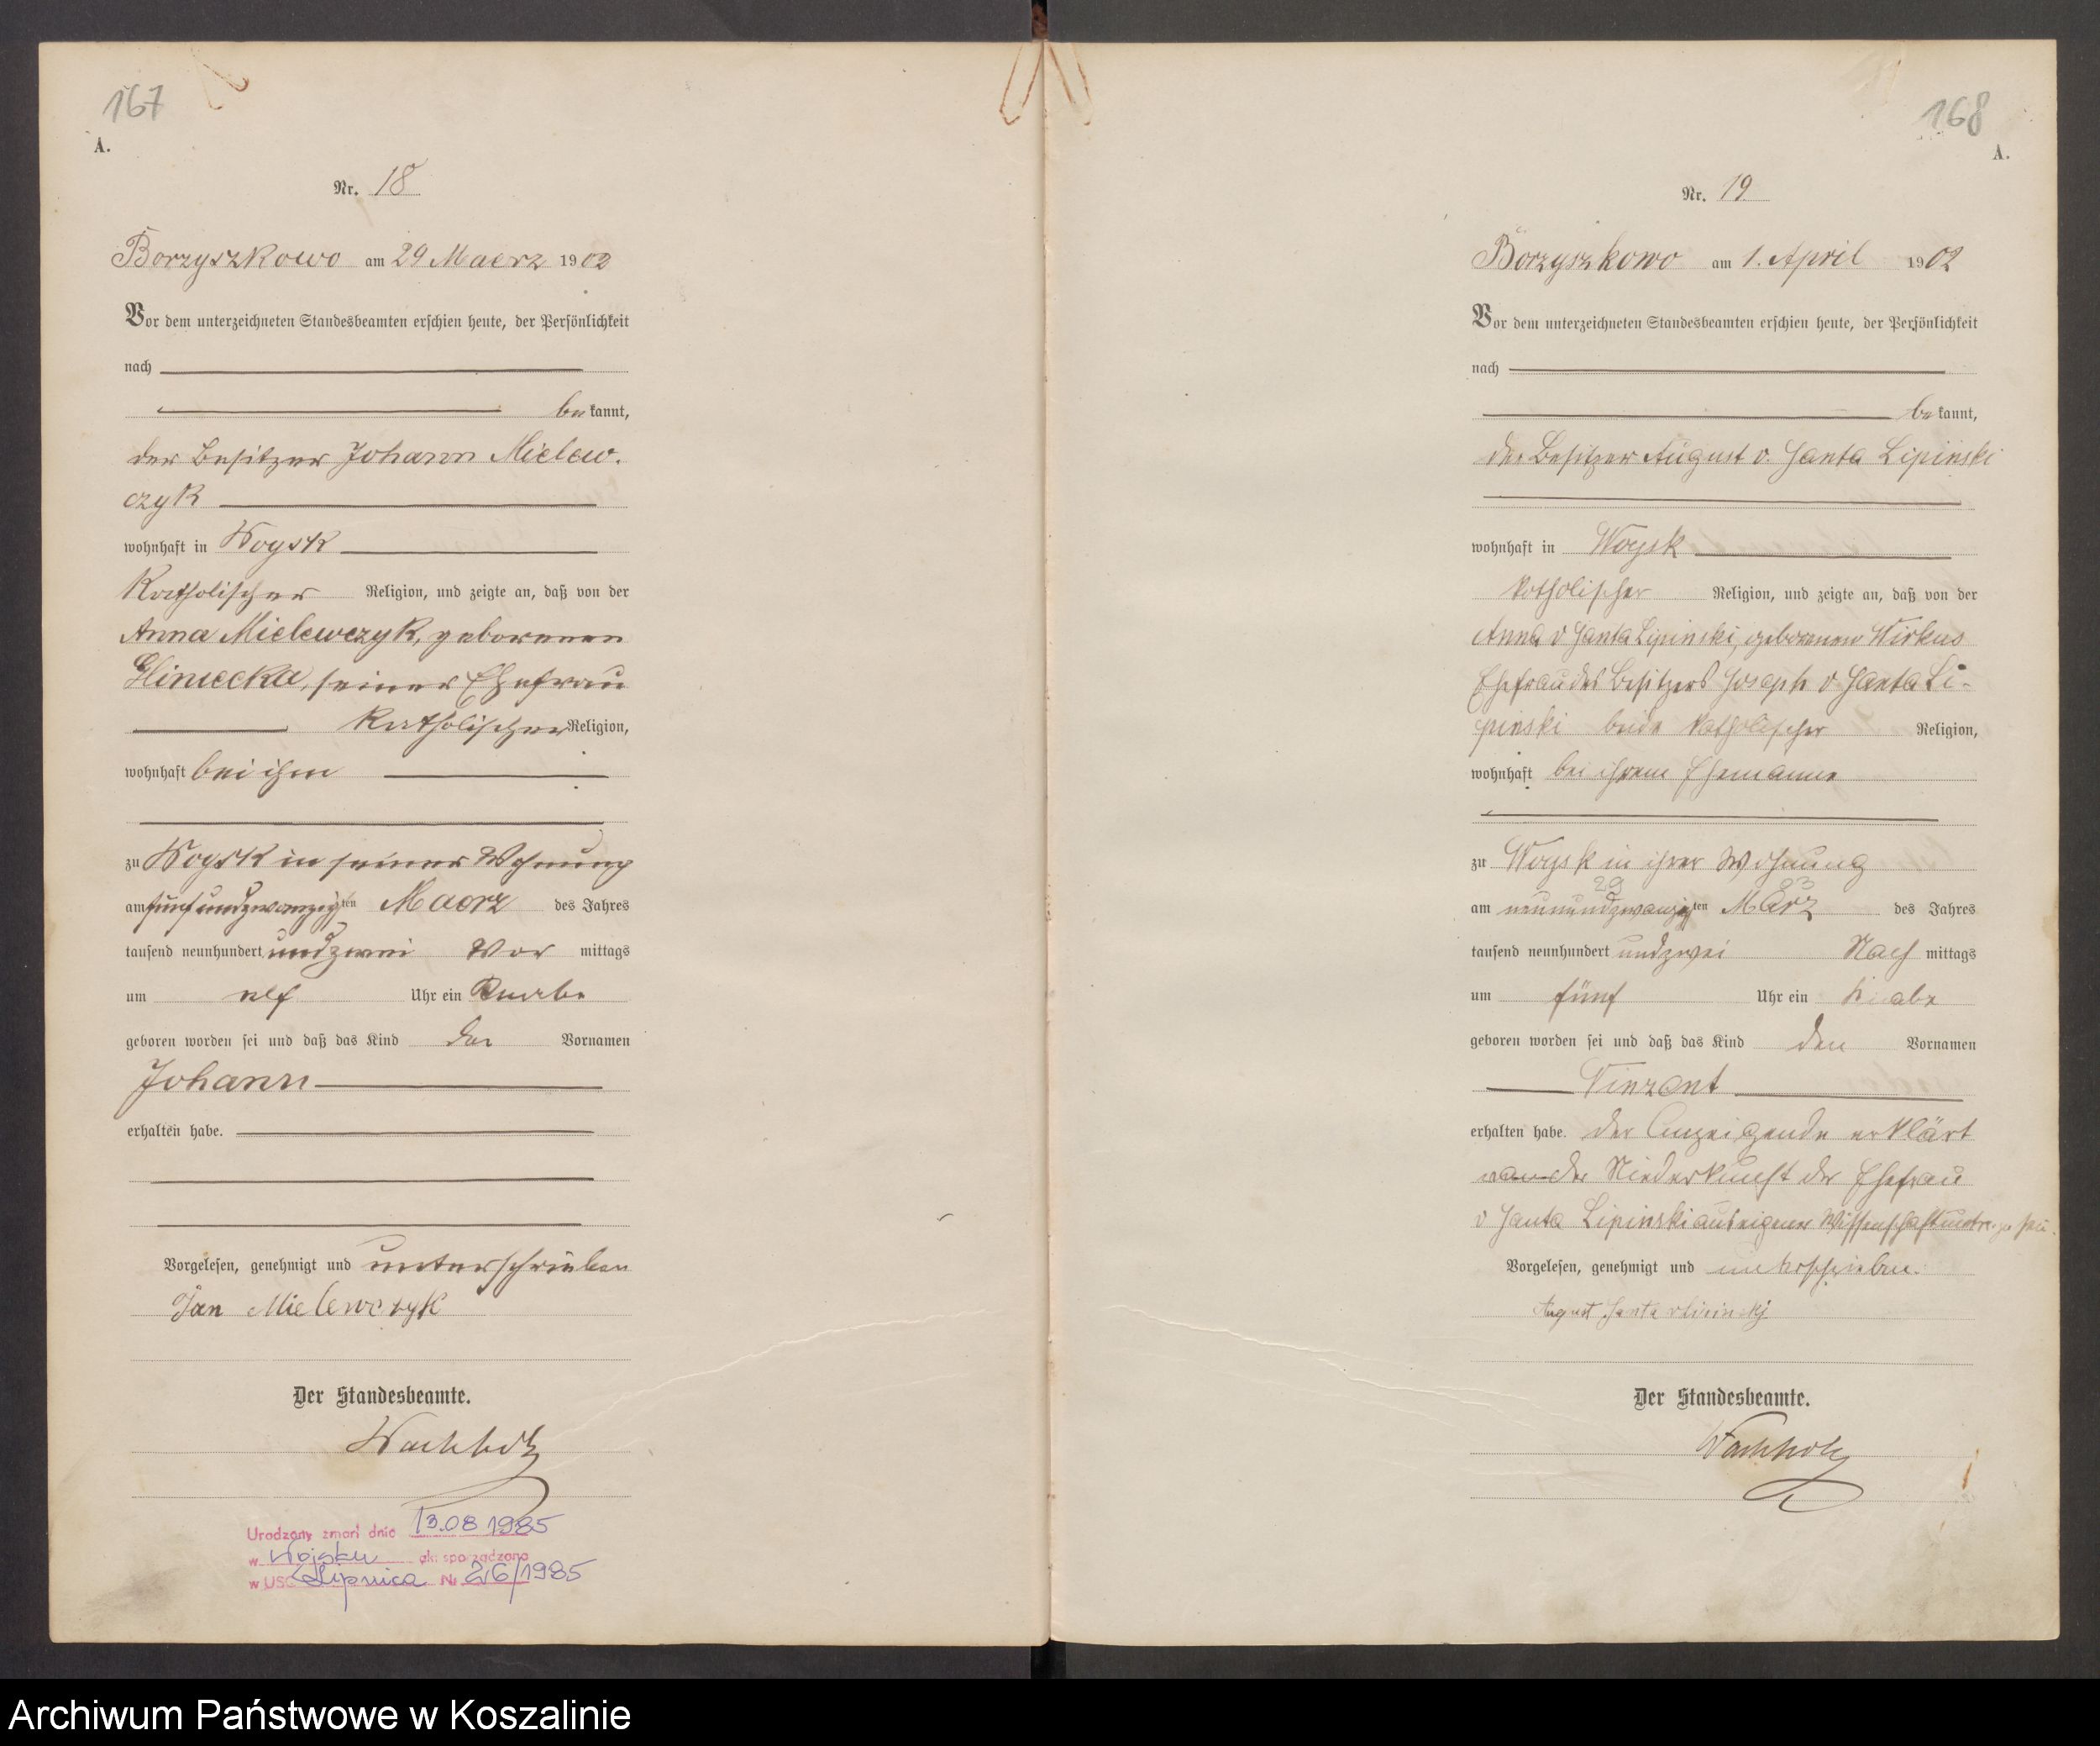 167
A.
Nr. 18
Borzyszkowo am 29 Maerz 1902
Vor dem unterzeichneten Standesbeamten erschien heute, der Persönlichkeit
nach
bekannt,
der Besitzer Johann Mielew-
czyk
wohnhaft in Woysk
Katholischer Religion, und zeigte an, daß von der
Anna Mielewczyk, geborenen
Gliniecka, seiner Ehefrau
Katholischer Religion,
wohnhaft bei ihm
zu Woysk in seiner Wohnung
am fünfundzwanzigsten Maerz des Jahres
tausend neunhundert undzwei Vor mittags
um elf Uhr ein Knabe
geboren worden sei und daß das Kind den Vornamen
Johann
erhalten habe.
Vorgelesen, genehmigt und unterschrieben
Jan Mielewczyk
Der Standesbeamte.
Wachholz
Urodzony zmarł dnia 13.08 1985
w Wojsku akt sporządzono
w USC Lipnica Nr 26/1985
168
A.
Nr. 19
Borzyszkowo am 1. April 1902
Vor dem unterzeichneten Standesbeamten erschien heute, der Persönlichkeit
nach
bekannt,
der Besitzer August v. Janta Lipinski
wohnhaft in Woysk
katholischer Religion, und zeigte an, daß von der
Anna v Janta Lipinski, geborenen Wirkus
Ehefrau des Besitzers Joseph v Janta Li-
pinski beide katholischer Religion,
wohnhaft bei ihrem Ehemanne
zu Woysk in ihrer Wohnung
29 03
am neunundzwanzigsten März des Jahres
tausend neunhundert undzwei Nach mittags
um fünf Uhr ein Knabe
geboren worden sei und daß das Kind den Vornamen
Vinzent
erhalten habe. Der Anzeigende erklärt
von der Niederkunft der Ehefrau
v Janta Lipinski aus eigener Wissenschaft unterrichtet zu sein.
Vorgelesen, genehmigt und unterschrieben.
August Janta v Lipinskj
Der Standesbeamte.
Wachholz
Archiwum Państwowe w Koszalinie